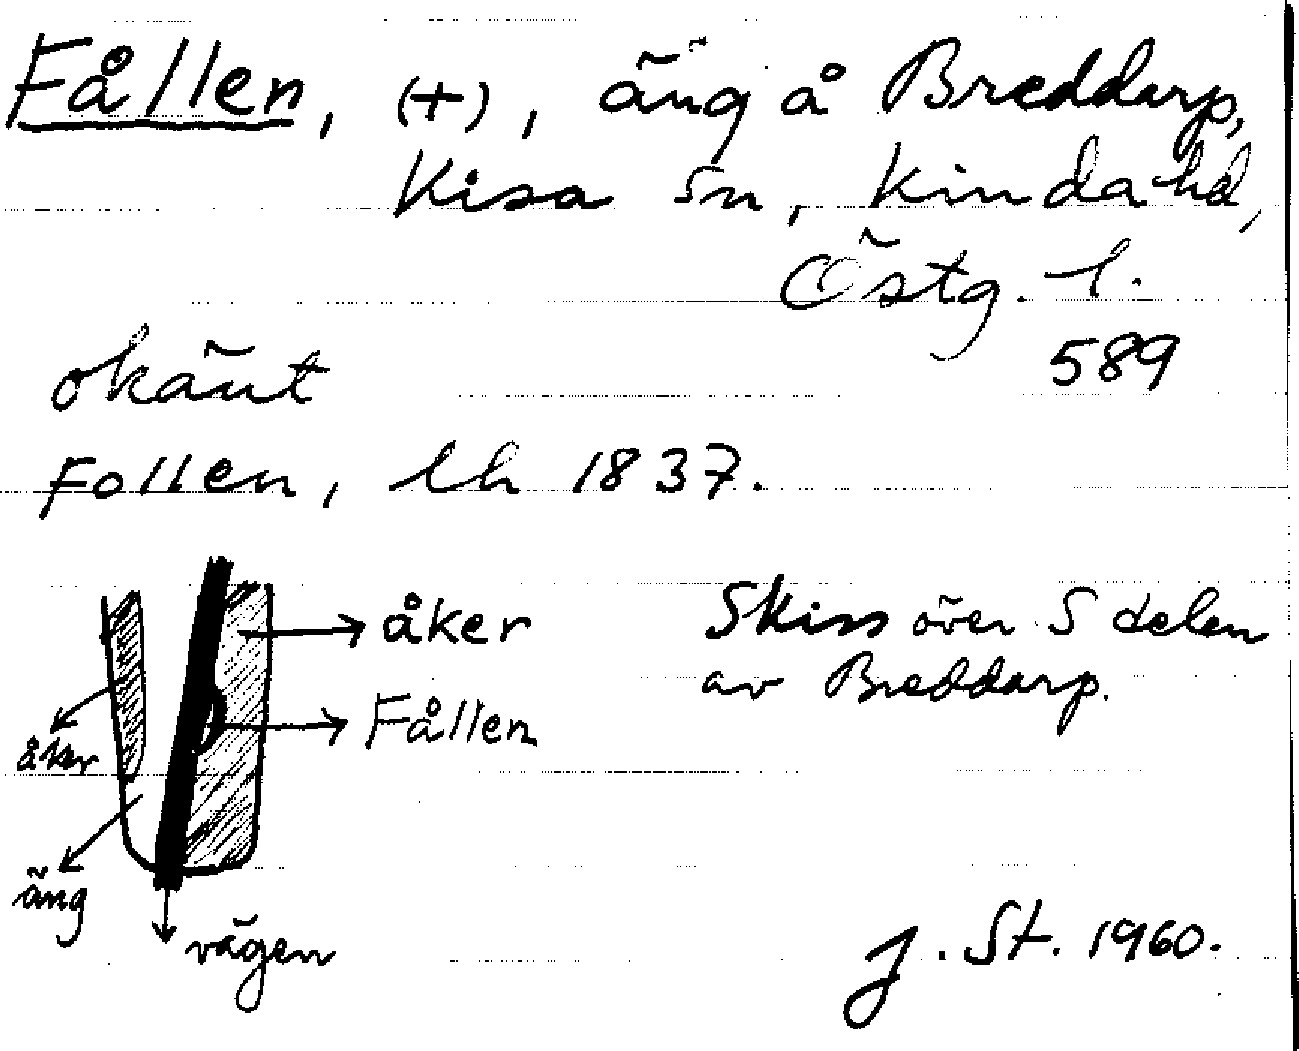 Fållen, (+), äng å Breddarp,
Kisa sn, Kinda hd,
Östg. l.
589
okänt
Follen, lh 1837.
åker
Skiss över S delen
av Breddarp.
Fållen
åker
äng
vägen
J. St. 1960.